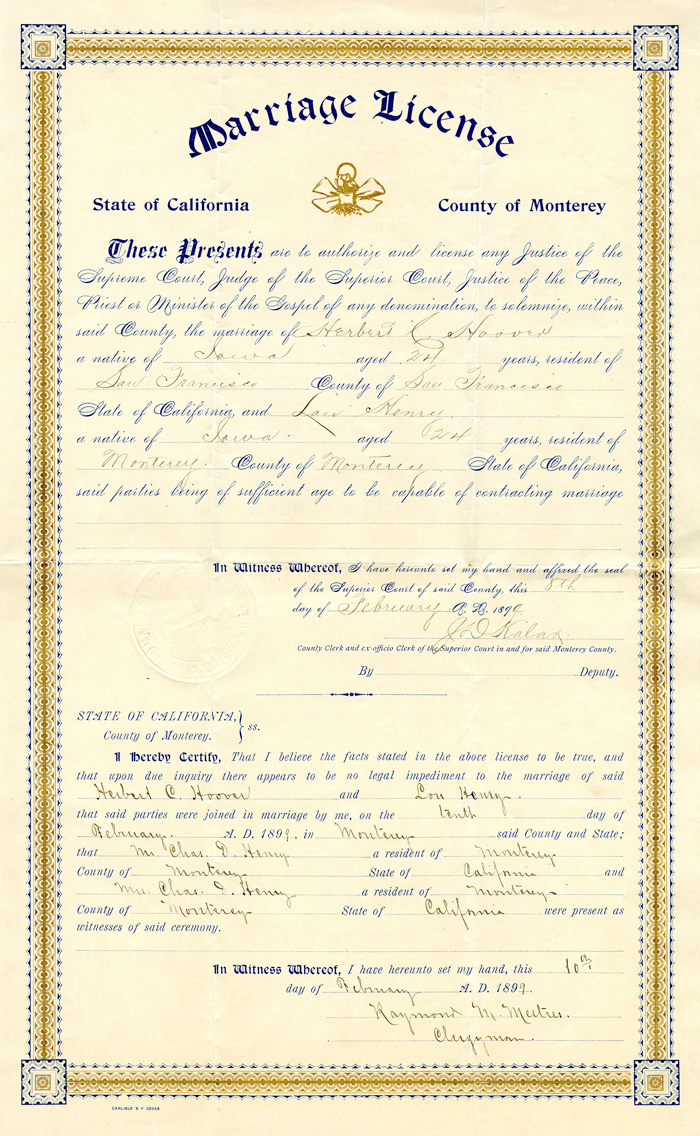 Marriage License
State of California County of Monterey
These Presents are to authorize and license any Justice of the
Supreme Court, Judge of the Superior Court, Justice of the Peace,
Priest or Minister of the Gospel of any denomination, to solemnize, within
said County, the marriage of Herbert C Hoover
a native of Iowa aged 24 years, resident of
San Francisco County of San Francisco
State of California, and Lou Henry.
a native of Iowa. aged 24 years, resident of
Monterey. County of Monterey State of California,
said parties being of sufficient age to be capable of contracting marriage
In Witness Whereof, I have hereunto set my hand and affixed the seal
of the Superior Court of said County, this 8th
day of February A. D. 1899
County Clerk and ex-officio Clerk of the Superior Court in and for said Monterey County.
By Deputy.
STATE OF CALIFORNIA, } ss.
County of Monterey.
I Hereby Certify, That I believe the facts stated in the above license to be true, and
that upon due inquiry there appears to be no legal impediment to the marriage of said
Herbert C. Hoover and Lou Henry.
that said parties were joined in marriage by me, on the tenth day of
February. A. D. 1899, in Monterey said County and State;
that Mr. Chas. D. Henry a resident of Monterey.
County of Monterey State of California and
Mrs. Chas. D. Henry a resident of Monterey
County of Monterey State of California were present as
witnesses of said ceremony.
In Witness Whereof, I have hereunto set my hand, this 10th
day of February A. D. 1899.
Raymond M. Mestres.
Clergyman.
CARLISLE S. F.